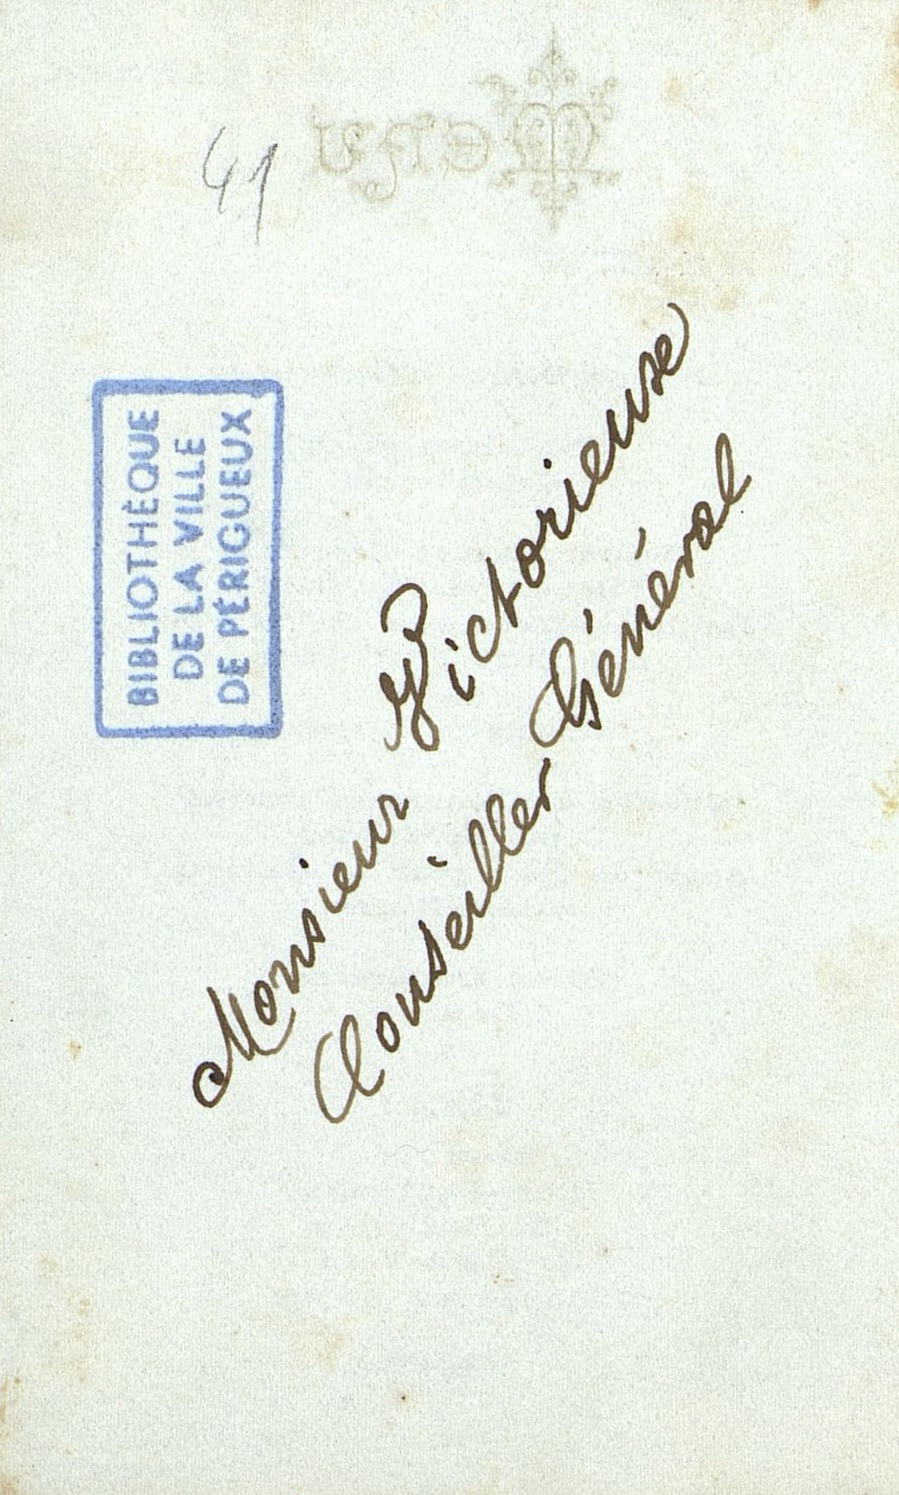 41
BIBLIOTHÈQUE
DE LA VILLE
DE PÉRIGUEUX
Monsieur Victorieuse
Conseiller Général